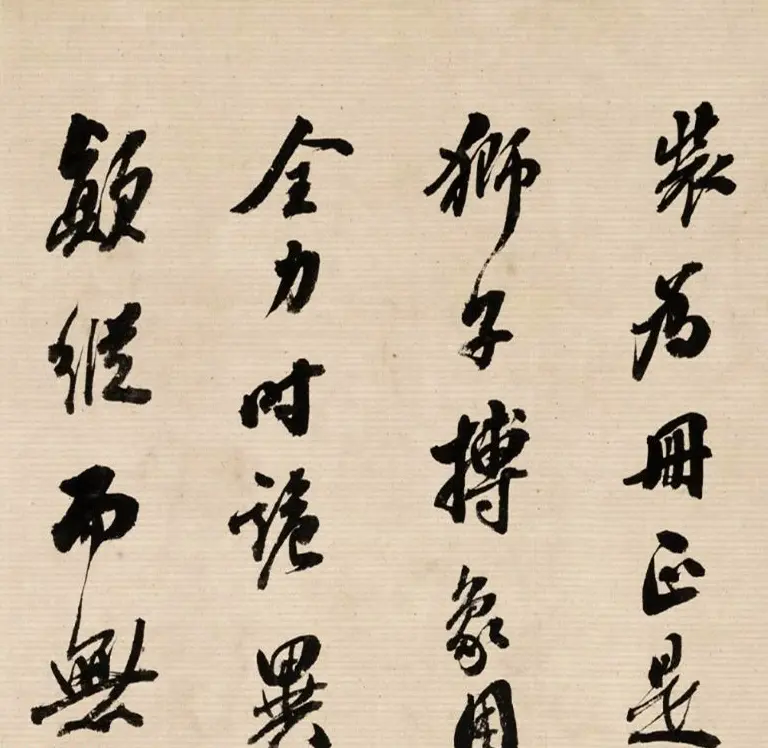 裝為冊正是
獅子搏象用
全力時詭異
顛縱而無